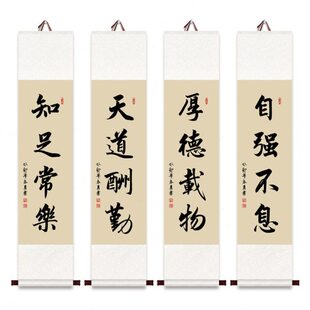 自强不息
厚德載物
天道酬勤
知足常樂